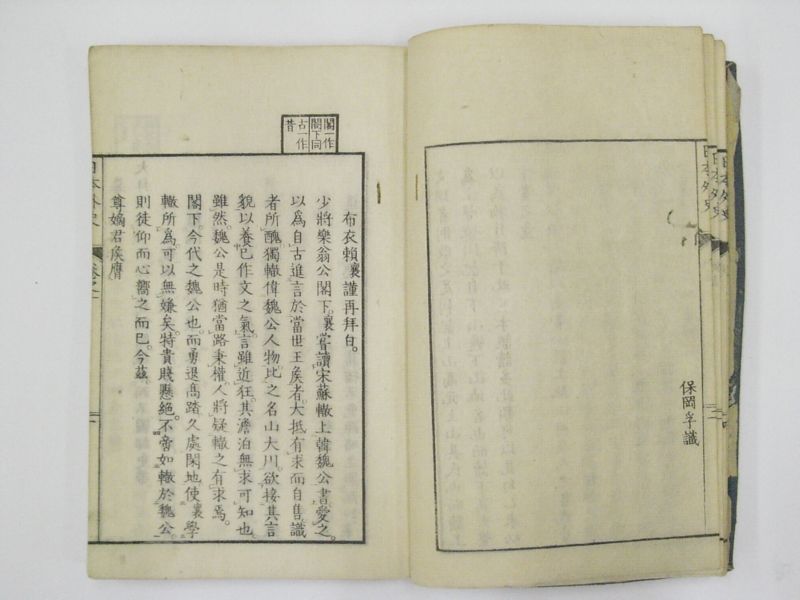 保岡孚識
日本外史
日本外史
閣一作
閤下同
古一作
昔
布衣賴襄謹再拜白。
少將樂翁公閣下。襄嘗讀宋蘇轍上韓魏公書。愛之。
以為自古進言於當世王矦者。大抵有求而自售。識
者所醜。獨轍偉魏公人物。比之名山大川。欲接其言
貌以養己作文之氣。言雖近狂。其澹泊無求可知也。
雖然。魏公是時猶當路秉權。人將疑轍之有求焉。
閣下。今代之魏公也。而勇退高踏久處閑地。使襄學
轍所為。可以無嫌矣。特貴賤懸絕。不啻如轍於魏公。
則徒仰而心嚮之而已。今茲。
尊嫡君矦膺
日本外史